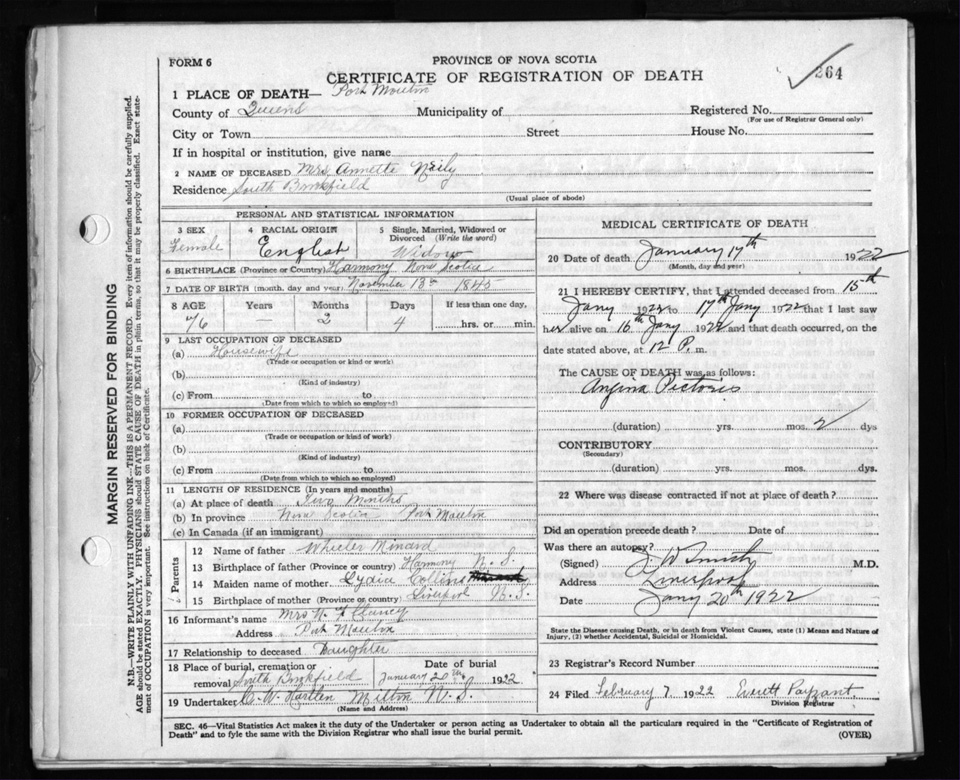 FORM 6
PROVINCE OF NOVA SCOTIA
CERTIFICATE OF REGISTRATION OF DEATH
264
1 PLACE OF DEATH— Port Mouton
County of Queens Municipality of Registered No.
(For use of Registrar General only)
City or Town Street House No.
If in hospital or institution, give name
2 NAME OF DECEASED Mrs Annette Neily
Residence South Brookfield
(Usual place of abode)
PERSONAL AND STATISTICAL INFORMATION
3 SEX 4 RACIAL ORIGIN 5 Single, Married, Widowed or
Divorced (Write the word)
Female English Widow
6 BIRTHPLACE (Province or Country) Harmony Nova Scotia
7 DATE OF BIRTH (month, day and year) November 13th 1845
8 AGE Years Months Days If less than one day,
76 — 2 4 hrs. or min.
9 LAST OCCUPATION OF DECEASED
(a) Housewife
(Trade or occupation or kind or work)
(b)
(Kind of industry)
(c) From to
(Date from which to which so employed)
10 FORMER OCCUPATION OF DECEASED
(a)
(Trade or occupation or kind of work)
(b)
(Kind of industry)
(c) From to
(Date from which to which so employed)
11 LENGTH OF RESIDENCE (In years and months)
(a) At place of death Months
(b) In province Nova Scotia Port Mouton
(c) In Canada (if an immigrant)
Parents
12 Name of father Wheeler Minard
13 Birthplace of father (Province or country) Harmony N. S.
14 Maiden name of mother Lydia Collins Minard
15 Birthplace of mother (Province or country) Liverpool N. S.
16 Informant's name Mrs
Address Port Mouton
17 Relationship to deceased Daughter
18 Place of burial, cremation or Date of burial
removal South Brookfield January 20th 1922
19 Undertaker C. W. Hartlen Milton N. S.
(Name and Address)
MEDICAL CERTIFICATE OF DEATH
20 Date of death January 17th 1922
(Month, day and year)
21 I HEREBY CERTIFY, that I attended deceased from 15th
Jany 1922 to 17th Jany 1922 that I last saw
her alive on 16th Jany 1922 and that death occurred, on the
date stated above, at 12 P. m.
The CAUSE OF DEATH was as follows:
Angina Pectoris
(duration) yrs. mos. 2 dys
CONTRIBUTORY
(Secondary)
(duration) yrs. mos. dys.
22 Where was disease contracted if not at place of death?
Did an operation precede death? Date of
Was there an autopsy?
(Signed) M.D.
Address Liverpool
Date Jany 20th 1922
State the Disease causing Death, or in death from Violent Causes, state (1) Means and Nature of
Injury, (2) whether Accidental, Suicidal or Homicidal.
23 Registrar's Record Number
24 Filed February 7 1922 Everett Payzant
Division Registrar
SEC. 46—Vital Statistics Act makes it the duty of the Undertaker or person acting as Undertaker to obtain all the particulars required in the "Certificate of Registration of
Death" and to fyle the same with the Division Registrar who shall issue the burial permit.
(OVER)
MARGIN RESERVED FOR BINDING
N.B.—WRITE PLAINLY WITH UNFADING INK—THIS IS A PERMANENT RECORD. Every item of information should be carefully supplied.
AGE should be stated EXACTLY. PHYSICIANS should STATE CAUSE OF DEATH in plain terms, so that it may be properly classified. Exact state-
ment of OCCUPATION is very important. See instructions on back of Certificate.